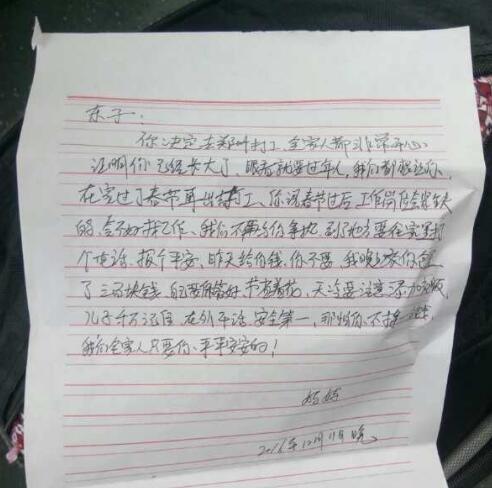 东子：
你决定去郑州打工，全家人都非常开心，
证明你已经长大了，眼看就要过年了，我们都想让你
在家过了春节再出去打工，你说春节过后工作岗位会
的，会不好找工作，我们不再与你争执，到了地方要往家里打
个电话，报个平安，昨天给你钱，你不要，我晚上
了三百块钱，自己要保管好，节省着花，天冷要注意添加衣服，
儿子千万记住，在外干活，安全第一，那怕你不挣一分钱，
我们全家人只要你，平平安安的！
妈妈
2016年12月11日晚